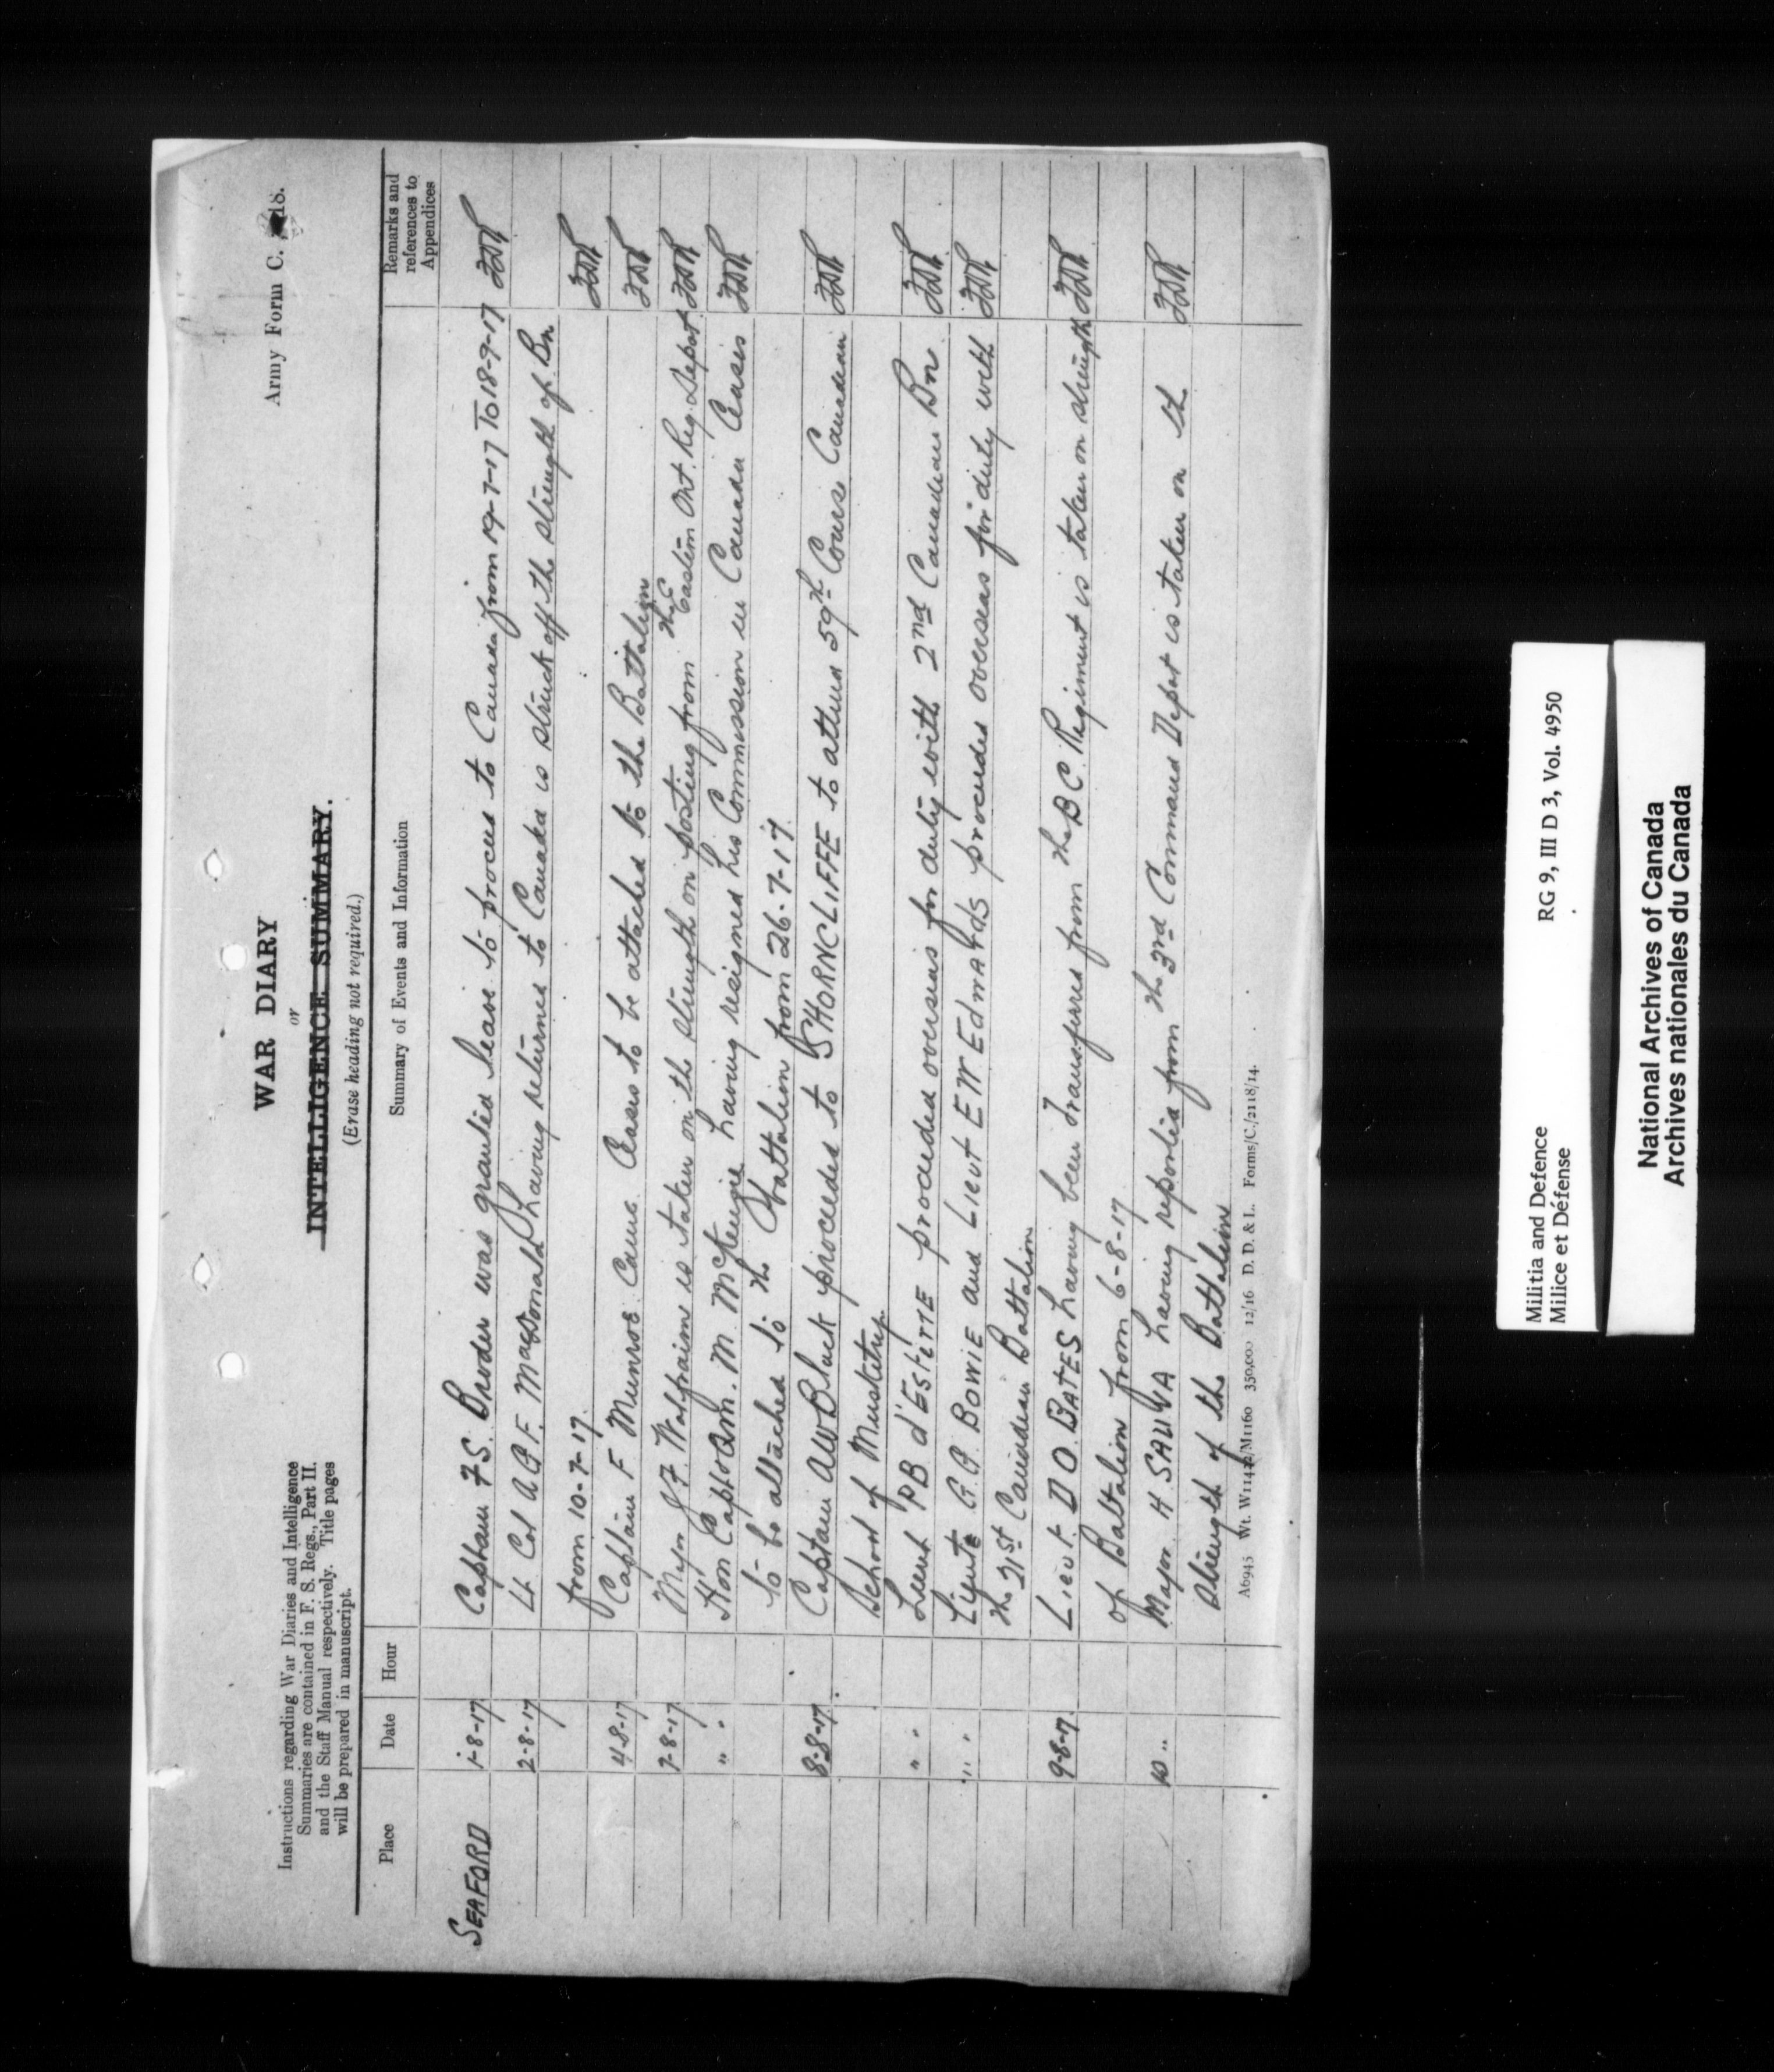 Army Form C. 2118.
WAR DIARY
or
INTELLIGENCE SUMMARY.
(Erase heading not required.)
Instructions regarding War Diaries and Intelligence
Summaries are contained in F. S. Regs., Part II.
and the Staff Manual respectively. Title pages
will be prepared in manuscript.
Place Date Hour Summary of Events and Information Remarks and references to Appendices
SEAFORD 1-8-17 Captain F.S. Broder was granted leave to proceed to Canada from 19-7-17 To 18-9-17
2-8-17 Lt Col A G F. Macdonald having returned to Canada is struck off the strength of Bn
from 10-7-17.
4-8-17 Captain F Munroe Cams. Ceases to be attached to the Battalion
7-8-17 Major J F. Wolfraim is taken on the strength on posting from the Eastern Ont. Reg. Depot
" " Hon Capt & Qm. M. McKenzie having resigned his Commission in Canada Ceases
to be attached to the Battalion from 26-7-17
8-8-17 Captain AW Black proceeded to SHORNCLIFFE to attend 59th Course Canadian
School of Musketry
" " Lieut PB d'Esterre proceeded overseas for duty with 2nd Canadian Bn
" " Lieut G.A. BOWIE and Lieut EW EdmArdS proceeded overseas for duty with
the 21st Canadian Battalion
9-8-17. Lieut. D O. BATES having been transferred from the BC. Regiment is taken on strength
of Battalion from 6-8-17
10 " Major H having reported from the 3rd Command Depot is taken on the
Strength of the Battalion
A6945 Wt. W11422/M1160 350,000 12/16 D. D. & L. Forms/C./2118/14.
Militia and Defence RG 9, III D 3, Vol. 4950
Milice et Défense
National Archives of Canada
Archives nationales du Canada